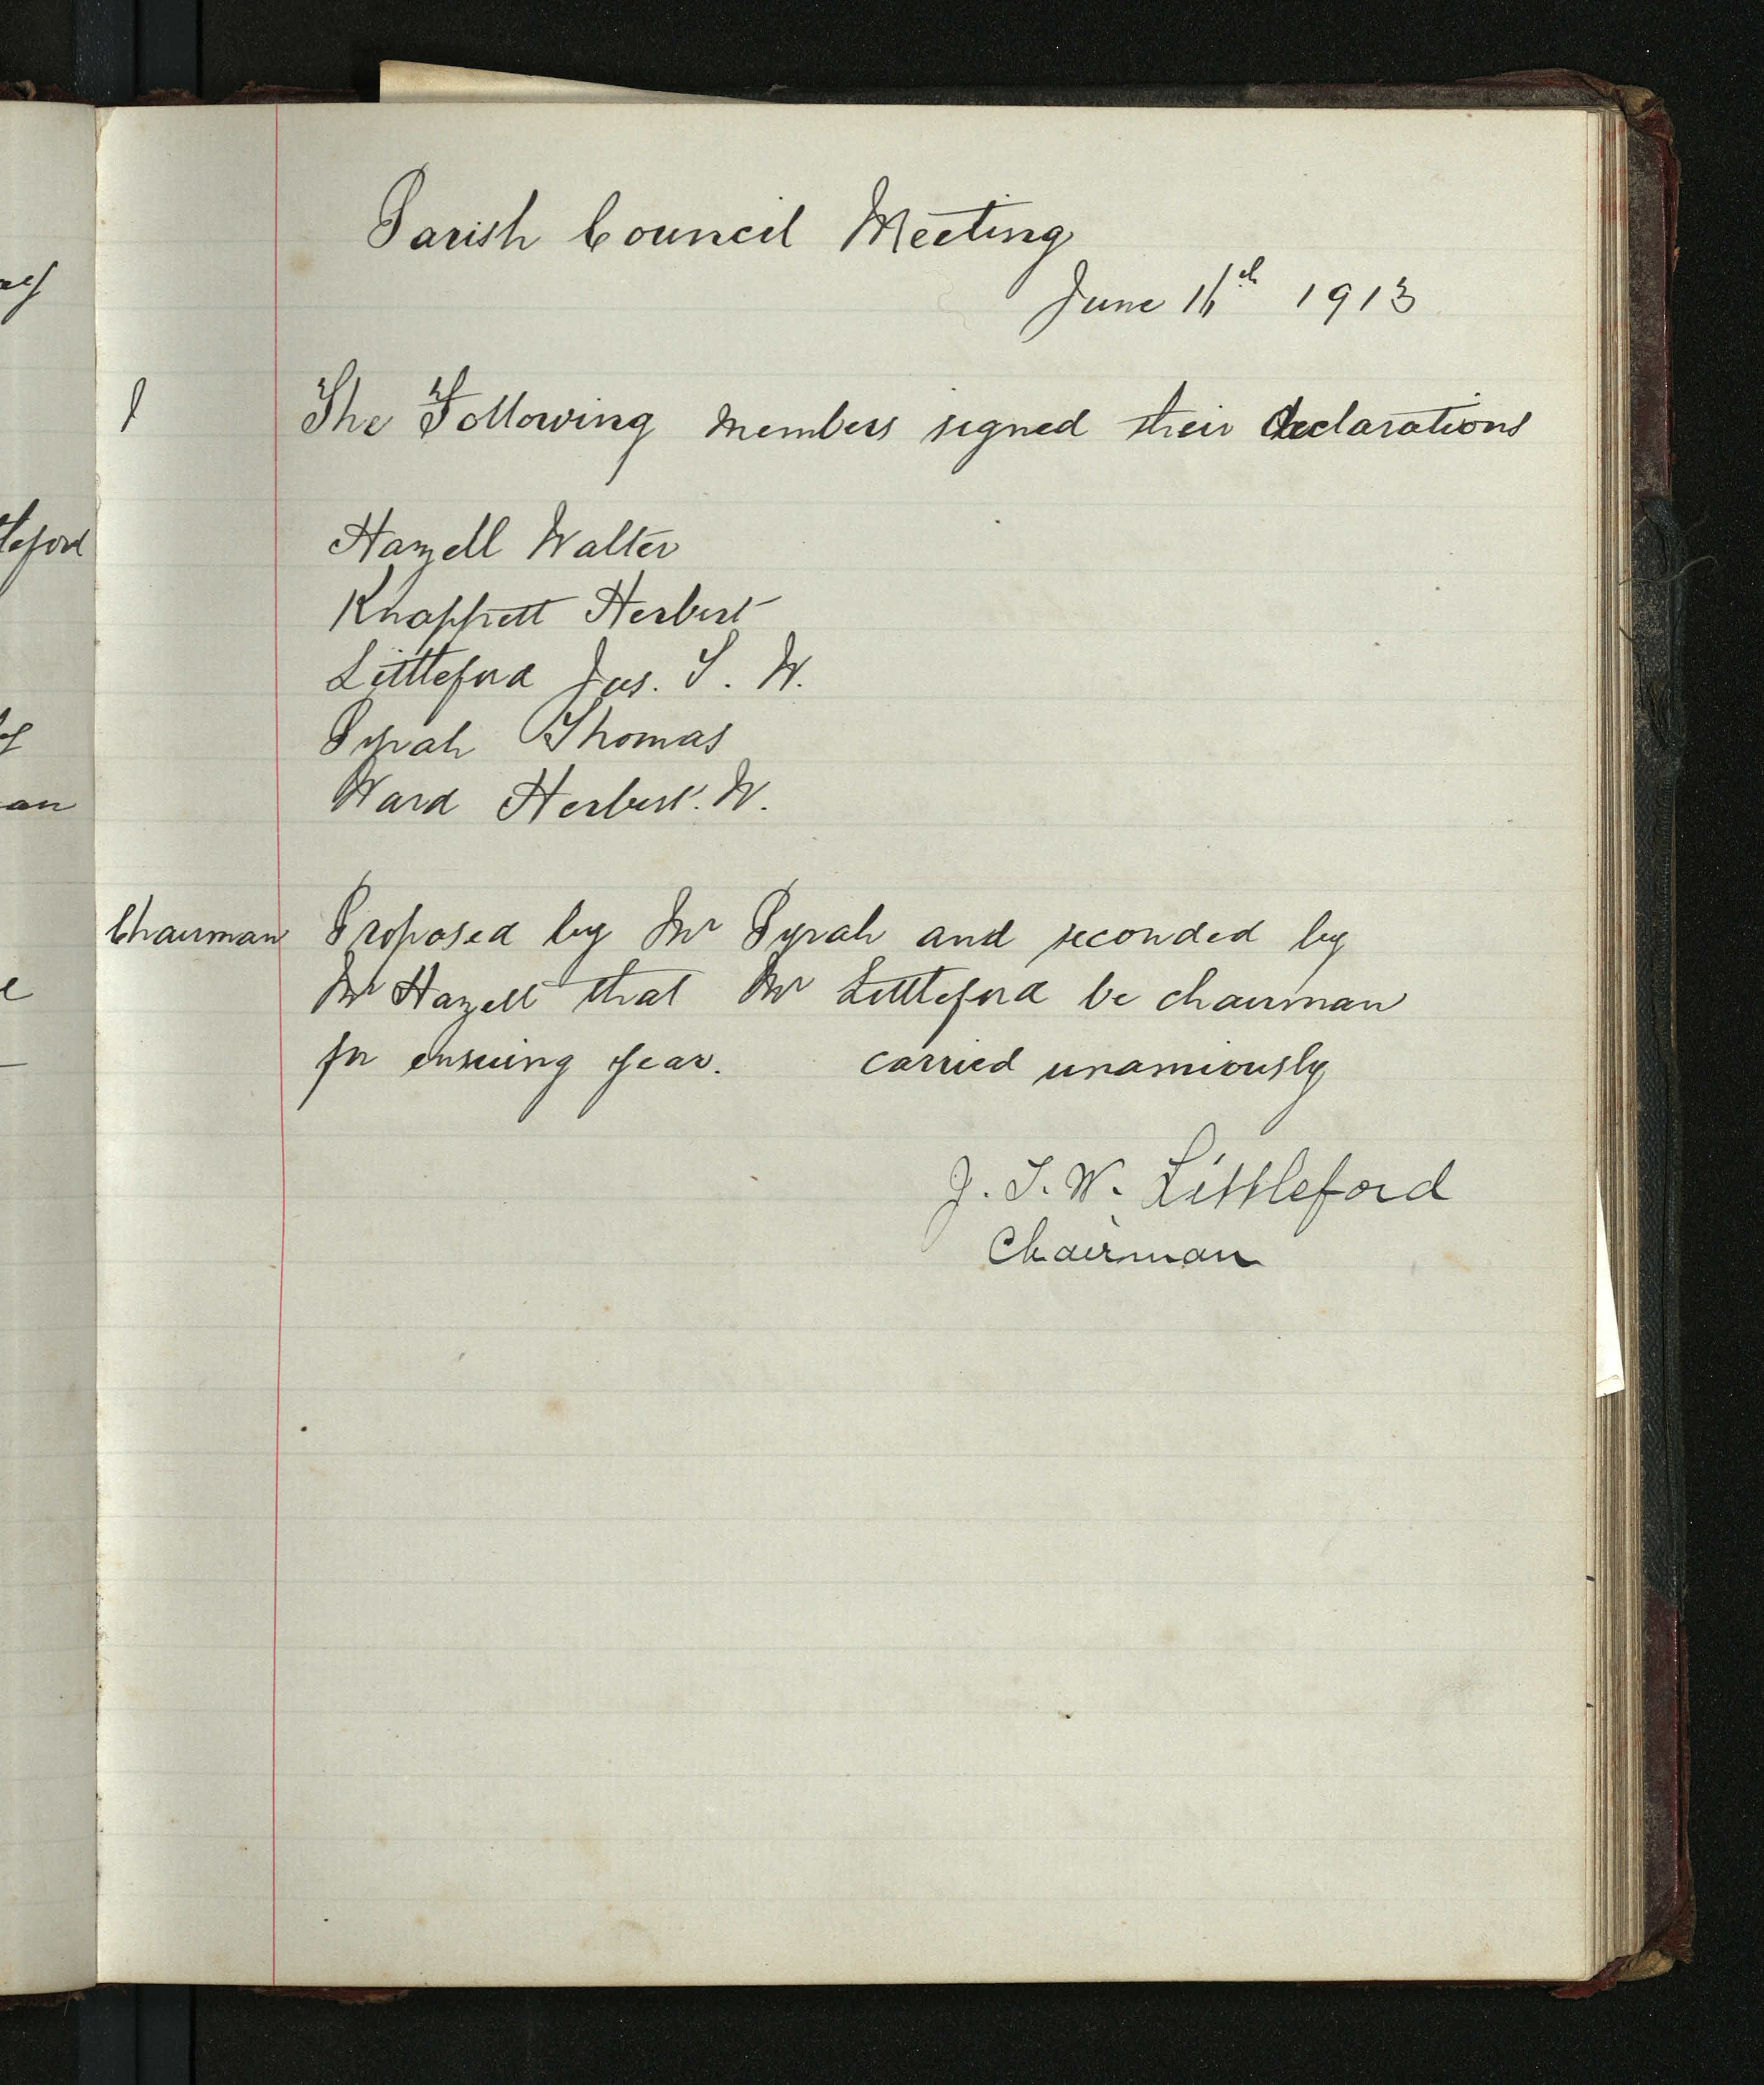 Parish Council Meeting
June 16th 1913
1 The Following members signed their declarations
Hazell Walter
Knappett Herbert
Littleford Jas. S. W.
Pyrah Thomas
Ward Herbert. W.
Chairman Proposed by Mr Pyrah and seconded by
Mr Hazell that Mr Littleford be chairman
for ensuing year. carried unamiously
J. S. W. Littleford
Chairman